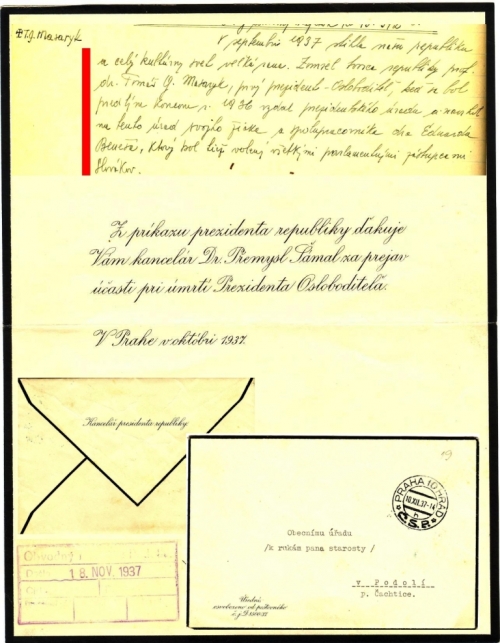 T.G. Masaryk
V septembri 1937 stihla našu republiku
a celý kultúrny svet veľká rana. Zomrel tvorca republiky prof.
dr. Tomáš G. Masaryk, prvý prezident-Osloboditeľ, keď sa bol
predtým koncom r. 1936 vzdal prezidentského úradu a
na tento úrad svojho žiaka a spolupracovníka dra Eduarda
Beneša, ktorý bol tiež volený všetkými parlamentnými zástupcami
Slovákov.
Z príkazu prezidenta republiky ďakuje
Vám kancelár Dr. Přemysl Šámal za prejav
účasti pri úmrtí Prezidenta Osloboditeľa.
V Prahe v októbri 1937.
Kancelár prezidenta republiky
PRAHA 10 HRAD
10.XII.37-14
b
Č.S.R.
Obecnímu úřadu
/k rukám pana starosty/
v Podolí
p. Čachtice.
Úřední
osvobozeno od poštovného
Obvodný
18. NOV. 1937